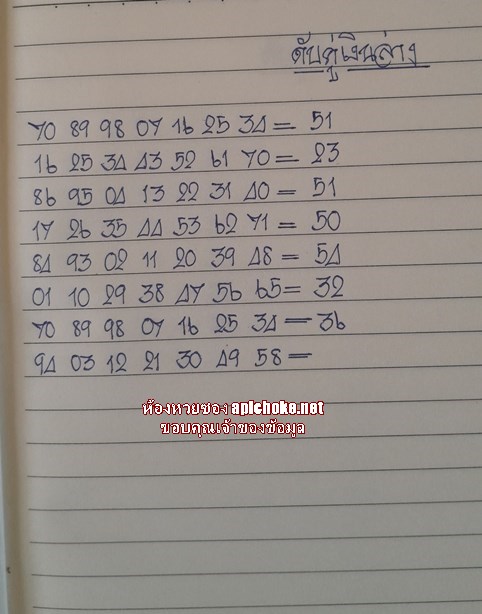 ดับคู่เงินล่าง
70 89 98 07 16 25 34 = 51
16 25 34 43 52 61 70 = 23
86 95 04 13 22 31 40 = 51
17 26 35 44 53 62 71 = 50
84 93 02 11 20 39 48 = 54
01 10 29 38 47 56 65 = 32
70 89 98 07 16 25 34 = 36
94 03 12 21 30 49 58 =
ห้องหวยซอง apichoke.net
ขอบคุณเจ้าของข้อมูล